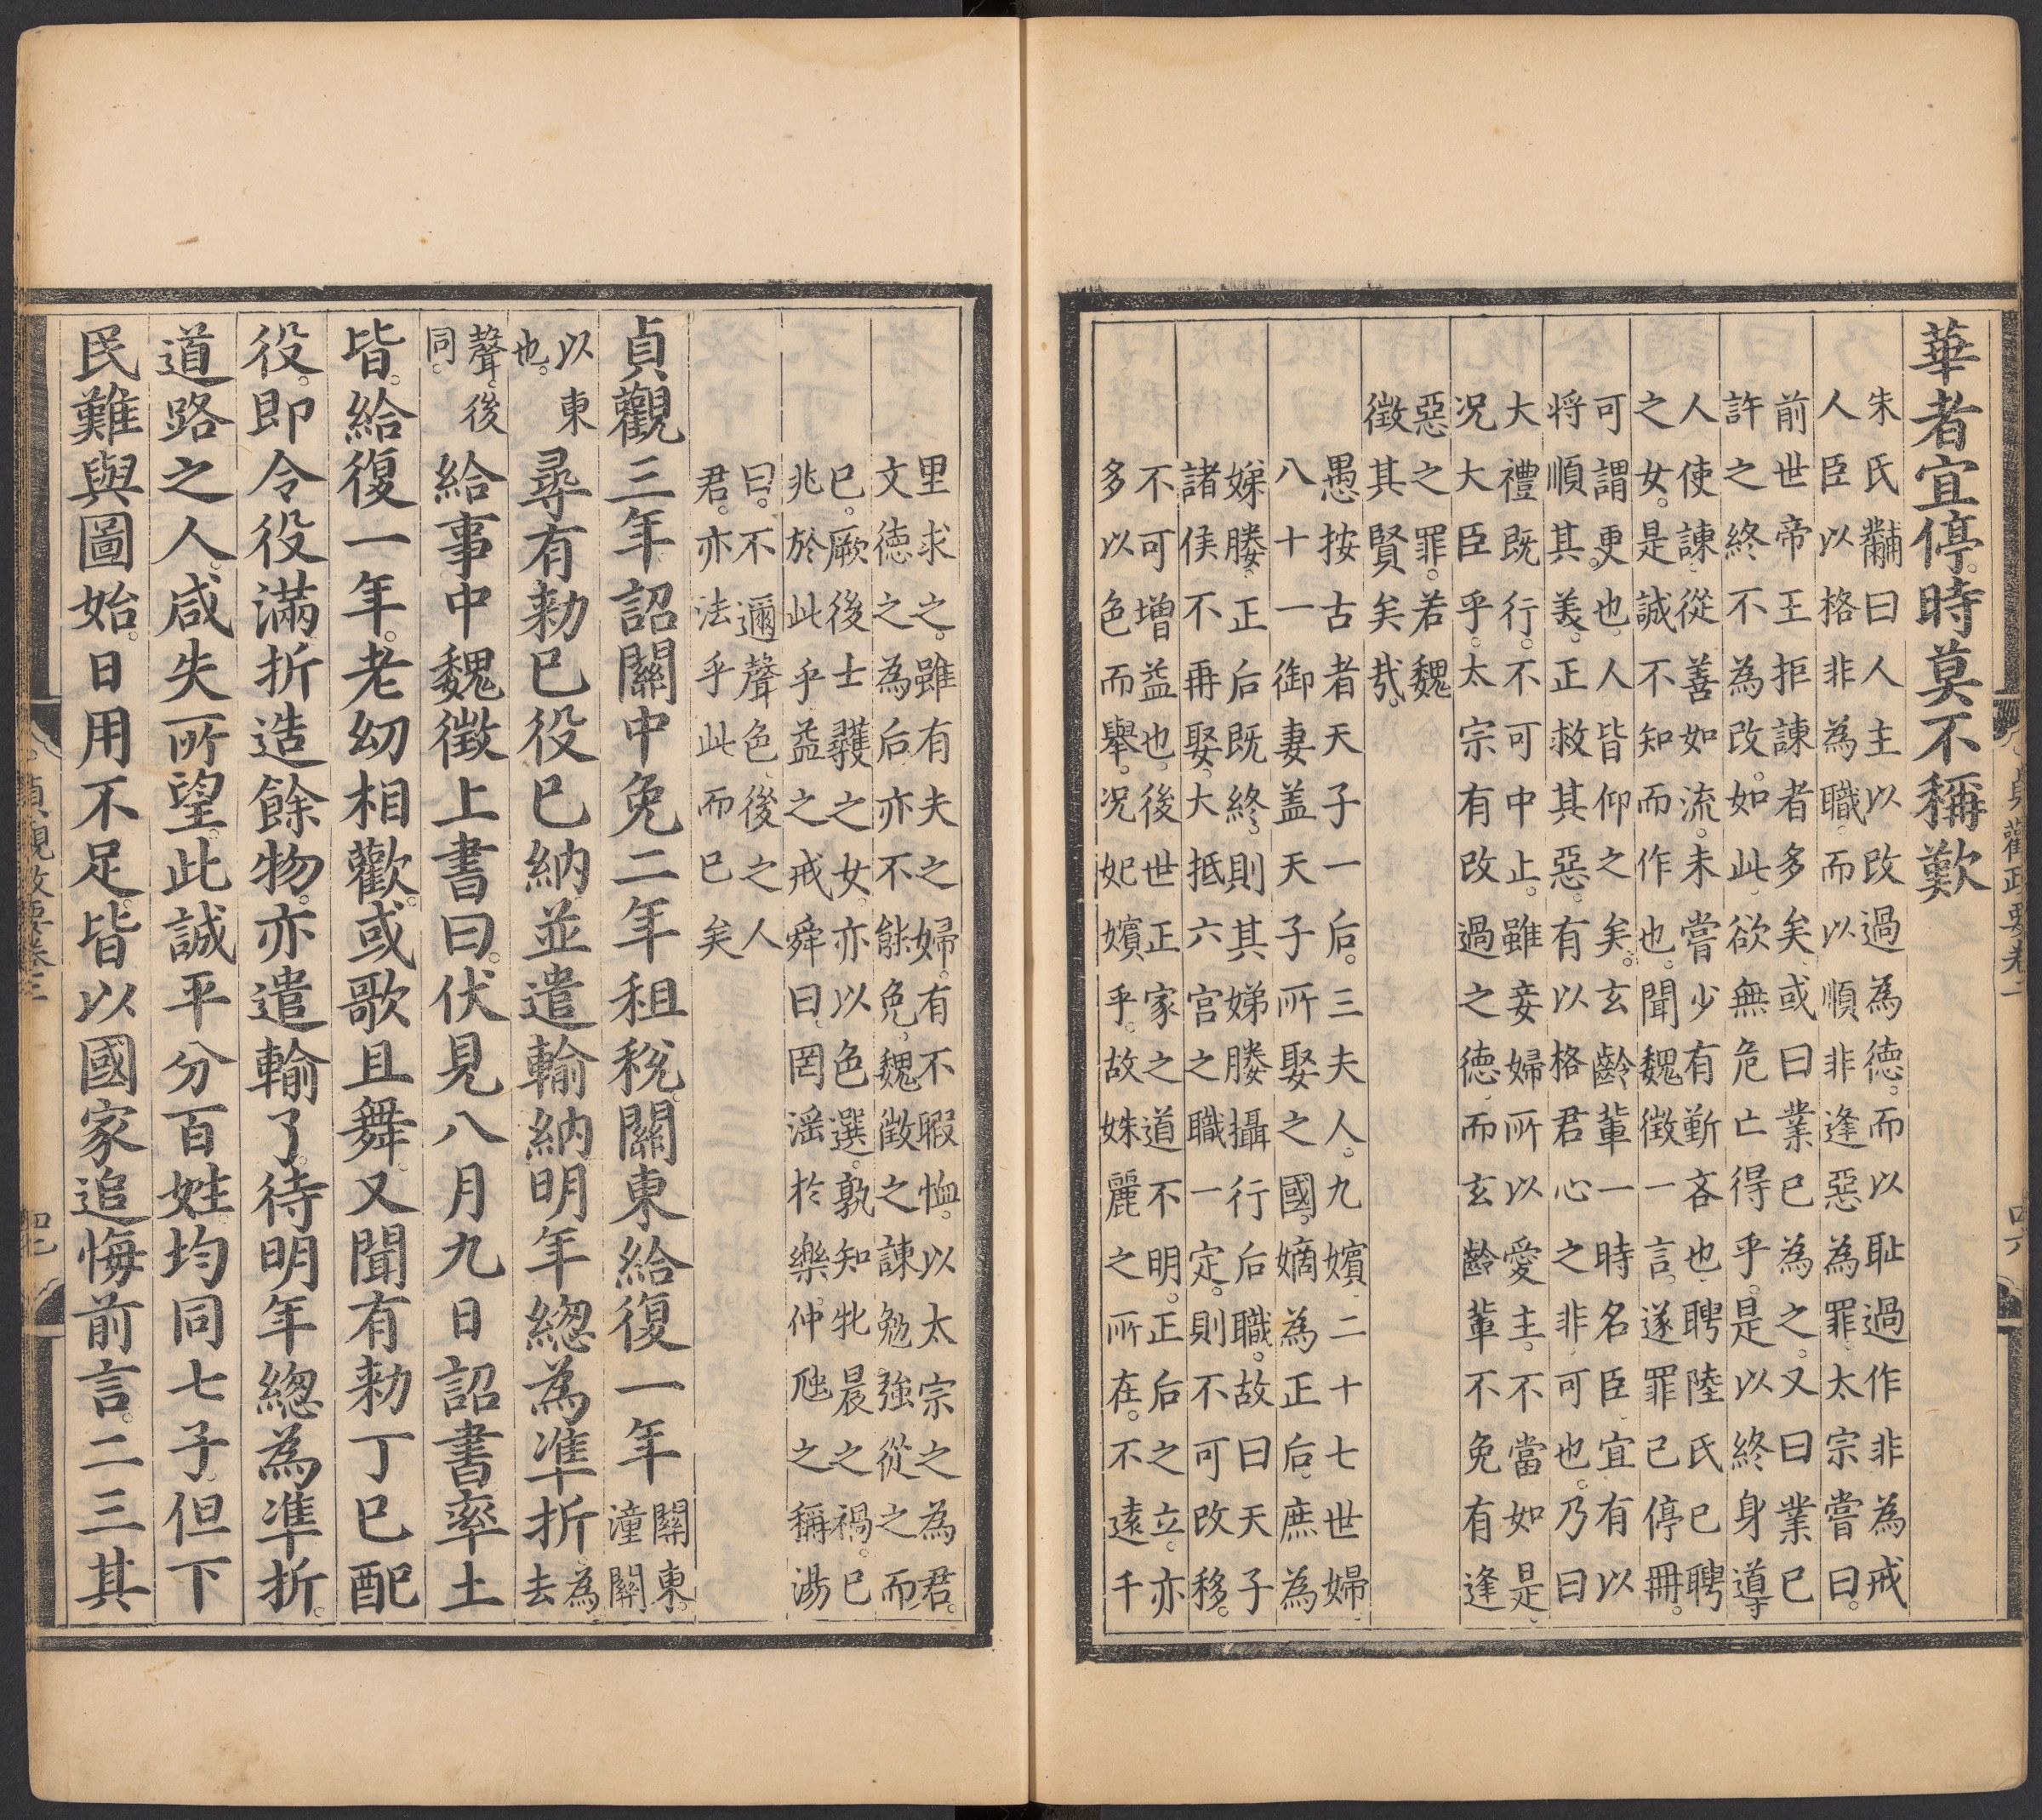 華者宜停時莫不稱歎
朱氏黼曰人主以改過為徳而以耻過作非為戒
人臣以格非為職而以順非逢惡為罪太宗嘗曰
前世帝王拒諫者多矣或曰業已為之又曰業已
許之終不為改如此欲無危亡得乎是以終身導
人使諫從善如流未嘗少有靳吝也聘陸氏已聘
之女是誠不知而作也聞魏徵一言遂罪己停冊
可謂更也人皆仰之矣玄齡軰一時名臣宜有以
将順其美正救其惡有以格君心之非可也乃曰
大禮既行不可中止雖妾婦所以愛主不當如是
况大臣乎太宗有改過之徳而玄齡軰不免有逢
惡之罪若魏
徵其賢矣㢤
愚按古者天子一后三夫人九嬪二十七世婦
八十一御妻盖天子所娶之國嫡為正后庶為
娣媵正后既終則其娣媵攝行后職故曰天子
諸侯不再娶大抵六宫之職一定則不可改移
不可增益也後世正家之道不明正后之立亦
多以色而舉况妃嬪乎故姝麗之所在不逺千
里求之雖有夫之婦有不暇恤以太宗之為君
文徳之為后亦不能免魏徵之諫勉强從之而
已厥後士彠之女亦以色選孰知牝晨之禍已
兆於此乎益之戒舜曰罔滛於樂仲虺之稱湯
曰不邇聲色後之人
君亦法乎此而已矣
貞觀三年詔關中免二年租稅關東給復一年關東潼關
以東也尋有勑已役已納並遣輸納明年緫為凖折為去
聲後同給事中魏徵上書曰伏見八月九日詔書率土
皆給復一年老幼相歡或歌且舞又聞有勑丁已配
役即令役滿折造餘物亦遣輸了待明年緫為凖折
道路之人咸失所望此誠平分百姓均同七子但下
民難與圖始日用不足皆以國家追悔前言二三其
貞觀政要卷二
四六